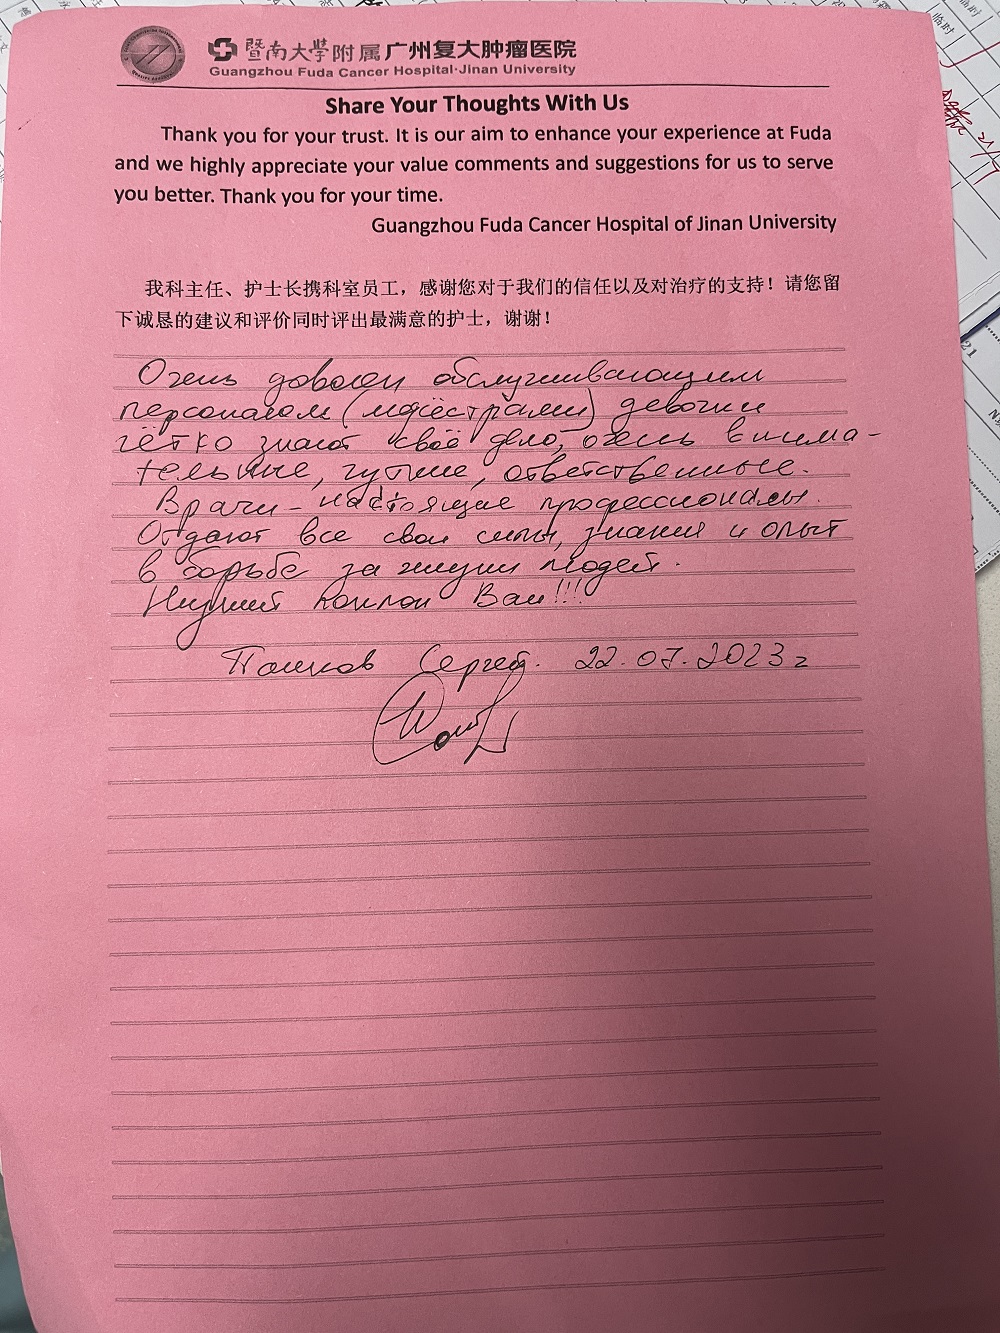 暨南大學附属广州复大肿瘤医院
Guangzhou Fuda Cancer Hospital·Jinan University
Share Your Thoughts With Us
Thank you for your trust. It is our aim to enhance your experience at Fuda
and we highly appreciate your value comments and suggestions for us to serve
you better. Thank you for your time.
Guangzhou Fuda Cancer Hospital of Jinan University
我科主任、护士长携科室员工，感谢您对于我们的信任以及对治疗的支持！请您留
下诚恳的建议和评价同时评出最满意的护士，谢谢！
Очень доволен обслуживающим
персоналом (медсёстрами) девочки
чётко знают своё дело, очень внима-
тельные, чуткие, ответственные.
Врачи – настоящие профессионалы.
Отдают все свои силы, знания и опыт
в борьбе за жизни людей.
Низкий поклон Вам!!!
Сергей. 22.07.2023г
临时
临时
21